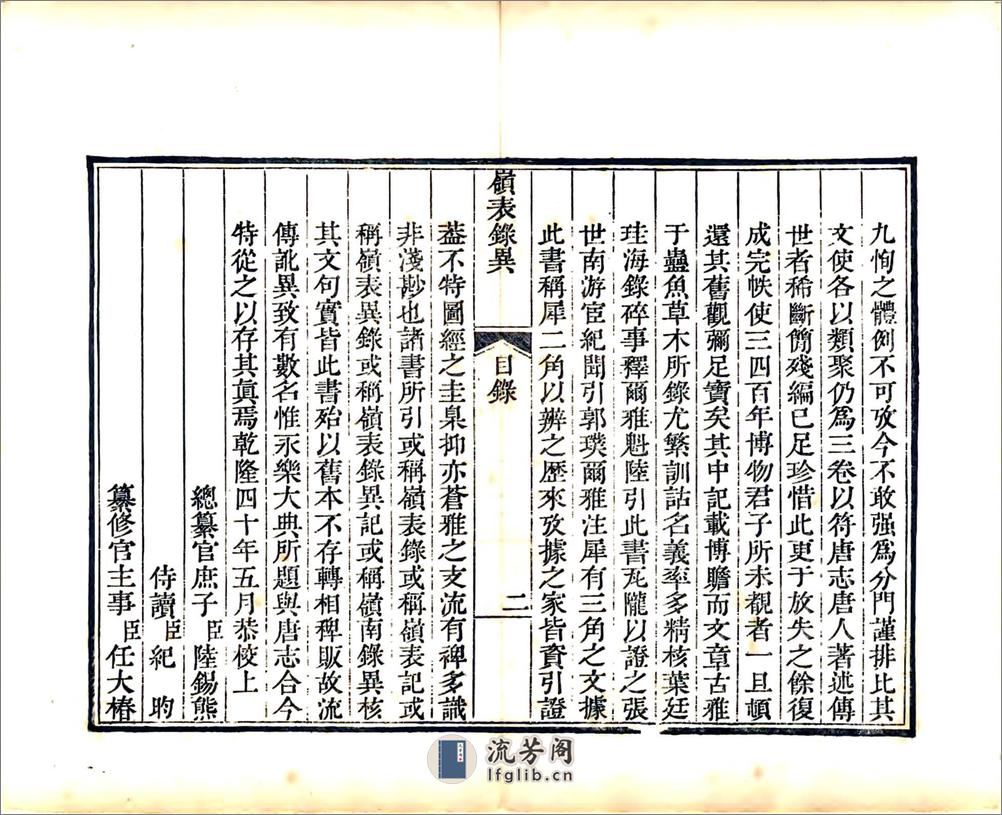 九恂之體例不可攷今不敢强爲分門謹排比其
文使各以類聚仍爲三卷以符唐志唐人著述傳
世者稀斷簡殘編已足珍惜此更于放失之餘復
成完帙使三四百年博物君子所未覩者一旦頓
還其舊觀彌足寶矣其中記載博贍而文章古雅
于蟲魚草木所錄尤繁訓詁名義率多精核葉廷
珪海錄碎事釋爾雅魁陸引此書瓦隴以證之張
世南游宦紀聞引郭璞爾雅注犀有三角之文據
此書稱犀二角以辨之歷來攷據之家皆資引證
嶺表錄異
目錄
二
葢不特圖經之圭臬抑亦蒼雅之支流有裨多識
非淺尠也諸書所引或稱嶺表錄或稱嶺表記或
稱嶺表異錄或稱嶺表錄異記或稱嶺南錄異核
其文句實皆此書殆以舊本不存轉相稗販故流
傳訛異致有數名惟永樂大典所題與唐志合今
特從之以存其眞焉乾隆四十年五月恭校上
總纂官庶子臣陸錫熊
侍讀臣紀昀
纂修官主事臣任大椿
流芳阁
lfglib.cn